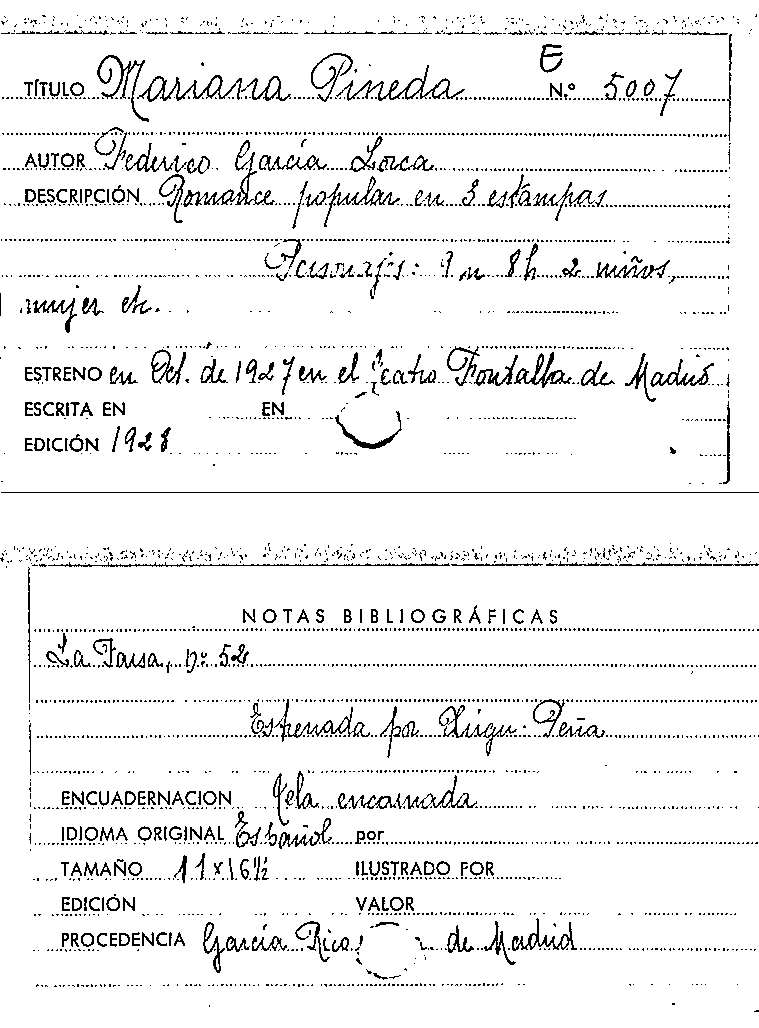 E
TÍTULO Mariana Pineda N.º 5007
AUTOR Federico García Lorca
DESCRIPCIÓN Romance popular en 3 estampas
Personajes: 9 m 8 h 2 niños,
mujer etc.
ESTRENO en Oct. de 1927 en el Teatro Fontalba de Madrid
ESCRITA EN EN
EDICIÓN 1928
NOTAS BIBLIOGRÁFICAS
La Farsa, nº 52
Estrenada por Xirgu-Peña
ENCUADERNACION Tela encarnada
IDIOMA ORIGINAL Español por
TAMAÑO 11 x 16½ ILUSTRADO POR
EDICIÓN VALOR
PROCEDENCIA García Rico de Madrid